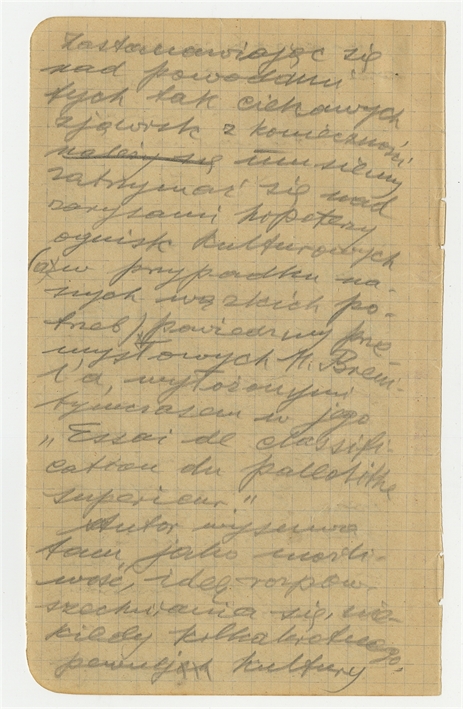 Zastanawiając się
nad powodami
tych tak ciekawych
zjawisk z konieczności
należy się musimy
zatrzymać się nad
zarysami hypotezy
ognisk kulturowych
(a w przypadku na-
szych wązkich po-
trzeb) powiedzmy prze-
mysłowych H. Breui-
l'a, wyłożonymi
tymczasem w jego
„Essai de classifi-
cation du paleolithe
superieur."
Autor wysuwa
tam jako możli-
wość, ideę rozpow-
szechniania się, nie-
kiedy kilkakrotnego,
pewnych kultury